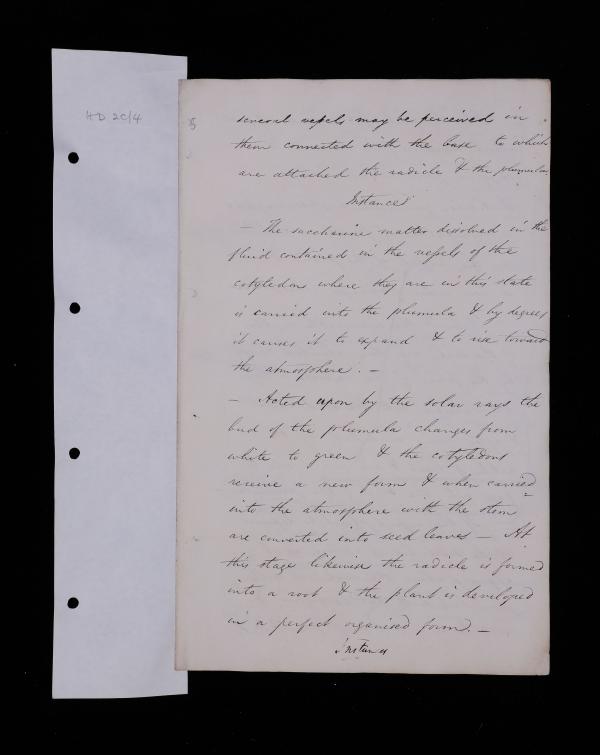 HD 2C/4
35
several vessels may be perceived in
them connected with the base to which
are attached the radicle & the plumula.
Instances
— The saccharine matter dissolved in the
fluid contained in the vessels of the
cotyledons where they are in this state
is carried into the plumula & by degrees
it causes it to expand & to rise toward
the atmosphere. —
— Acted upon by the solar rays the
bud of the plumula changes from
white to green & the cotyledons
receive a new form & when carried
into the atmosphere with the stem
are converted into seed leaves — At
this stage likewise the radicle is formed
into a root & the plant is developed
in a perfect organised form. —